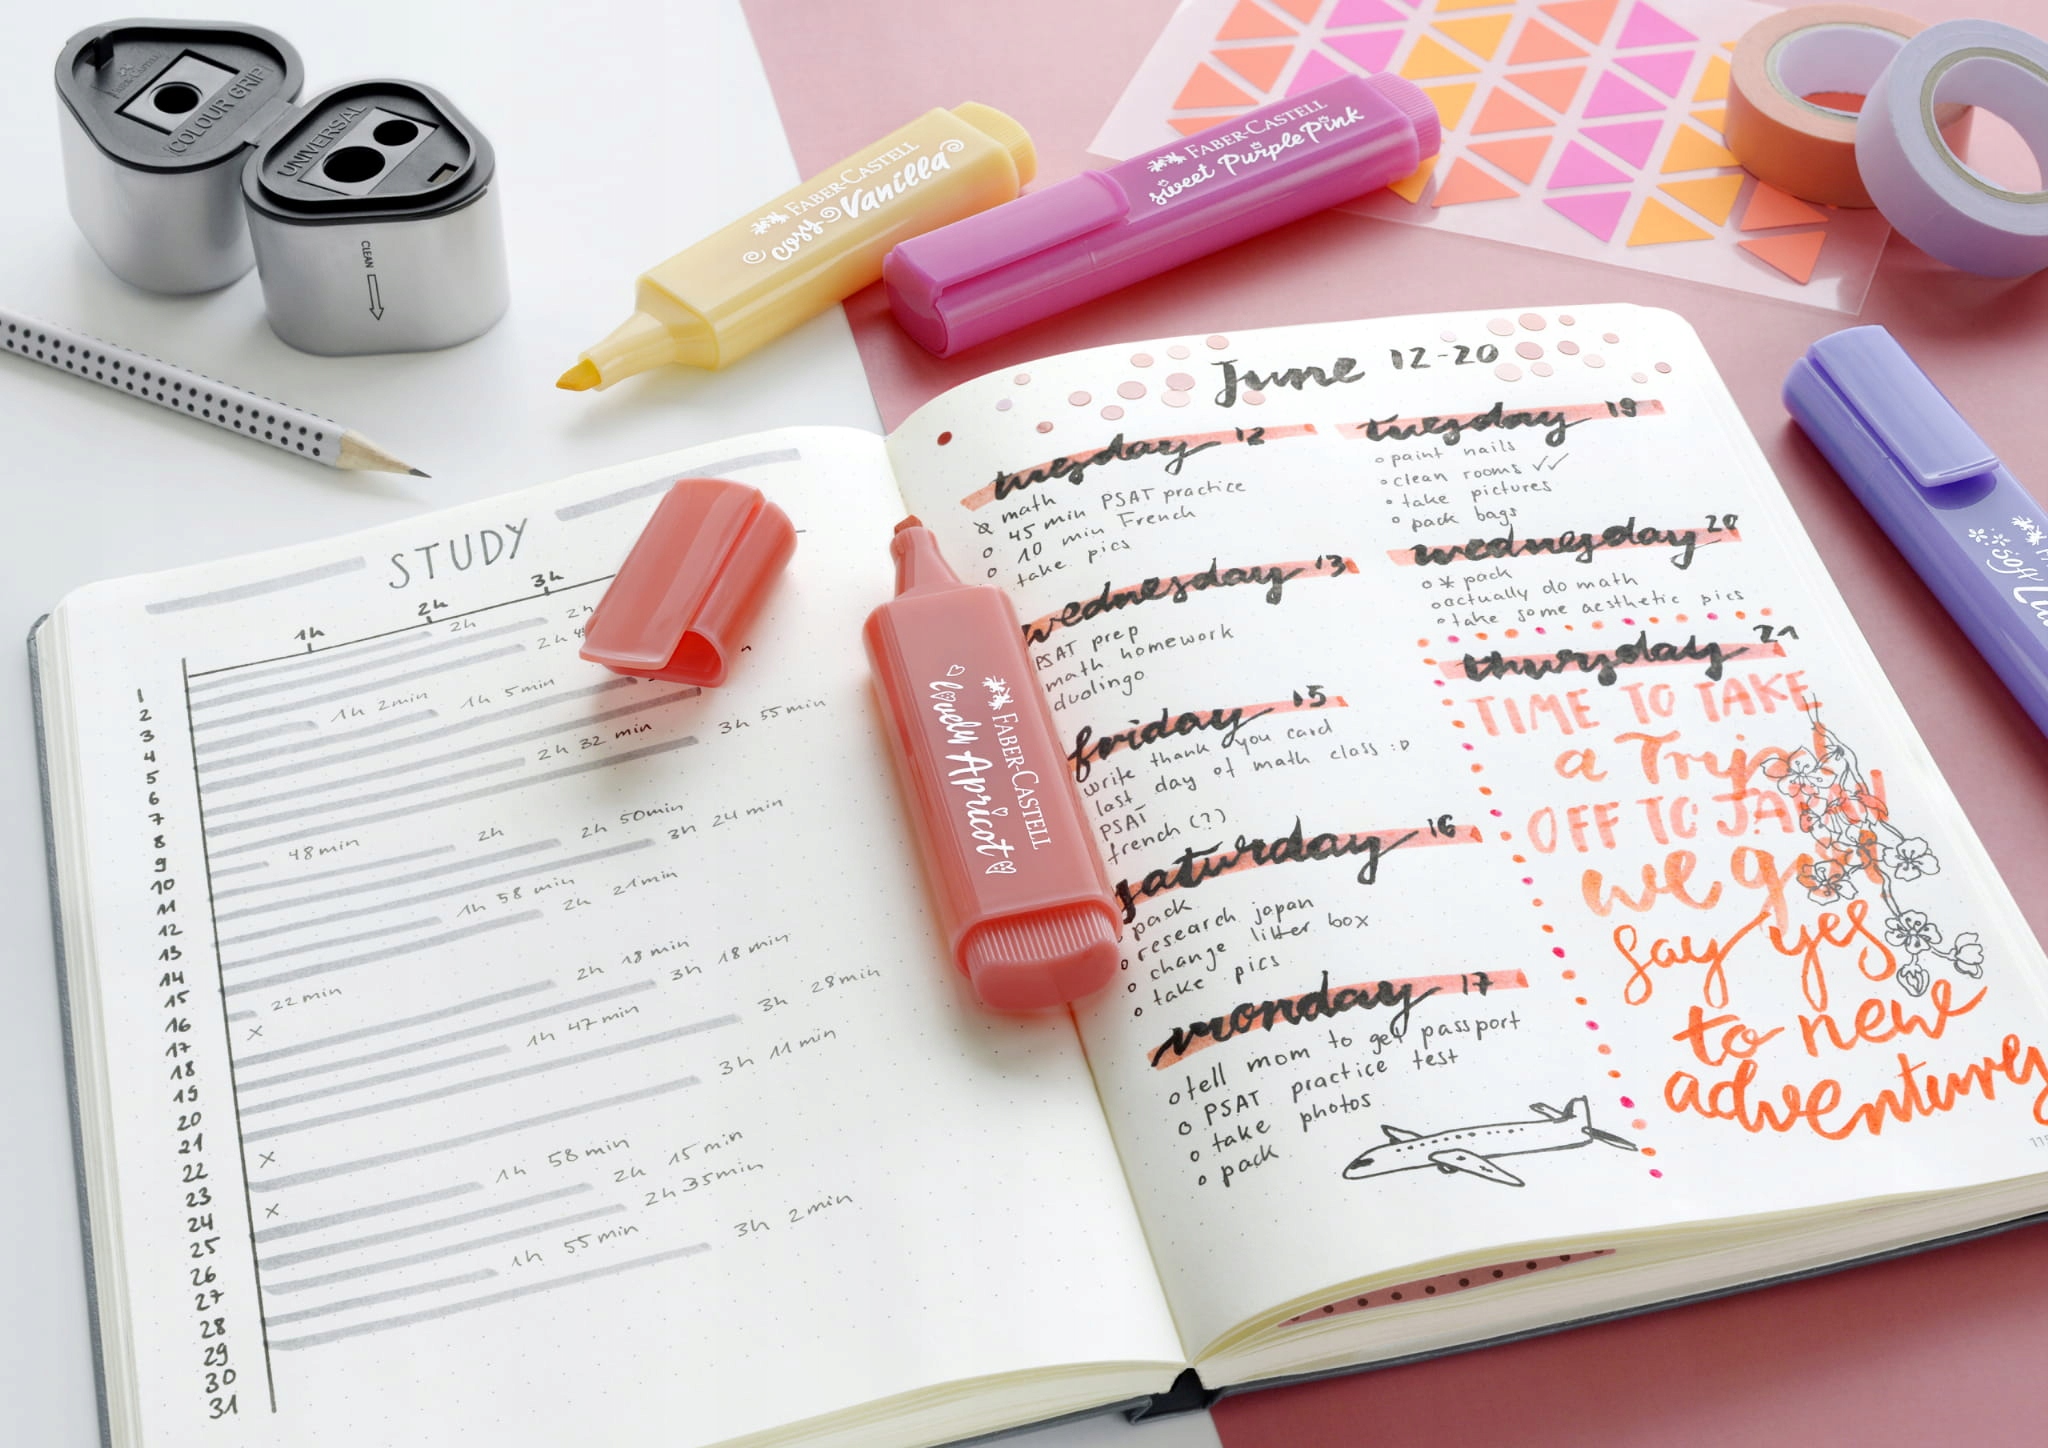 FABER-CASTELL
COLOUR GRIP
UNIVERSAL
CLEAN
FABER-CASTELL
cosy Vanilla
FABER-CASTELL
sweet PurplePink
FABER-CASTELL
lovely Apricot
soft
STUDY
1h
2h
3h
1
2
3
4
5
6
7
8
9
10
11
12
13
14
15
16
17
18
19
20
21
22
23
24
25
26
27
28
29
30
31
2h
2h
1h 2min
1h 5min
3h 55min
2h 32 min
48min
2h
2h 50min
3h 24min
1h 58min
2h 21min
22min
x
2h 18min
3h 18min
3h 28min
1h 47min
3h 11min
x
1h 58min
x
2h 15min
2h35min
1h 55min
3h 2min
June 12-20
tuesday 12
math
45 min PSAT practice
10 min French
take pics
wednesday 13
PSAT prep
math homework
duolingo
friday 15
write thank you card
last day of math class :D
PSAT
french (?)
saturday 16
pack
research japan
change litter box
take pics
monday 17
tell mom to get passport
PSAT practice test
take photos
pack
tuesday 19
paint nails
clean rooms ✓✓
take pictures
pack bags
wednesday 20
* pack
actually do math
take some aesthetic pics
thursday 21
TIME TO TAKE
a Trip!
OFF TO JAPAN
we go
say yes
to new
adventures